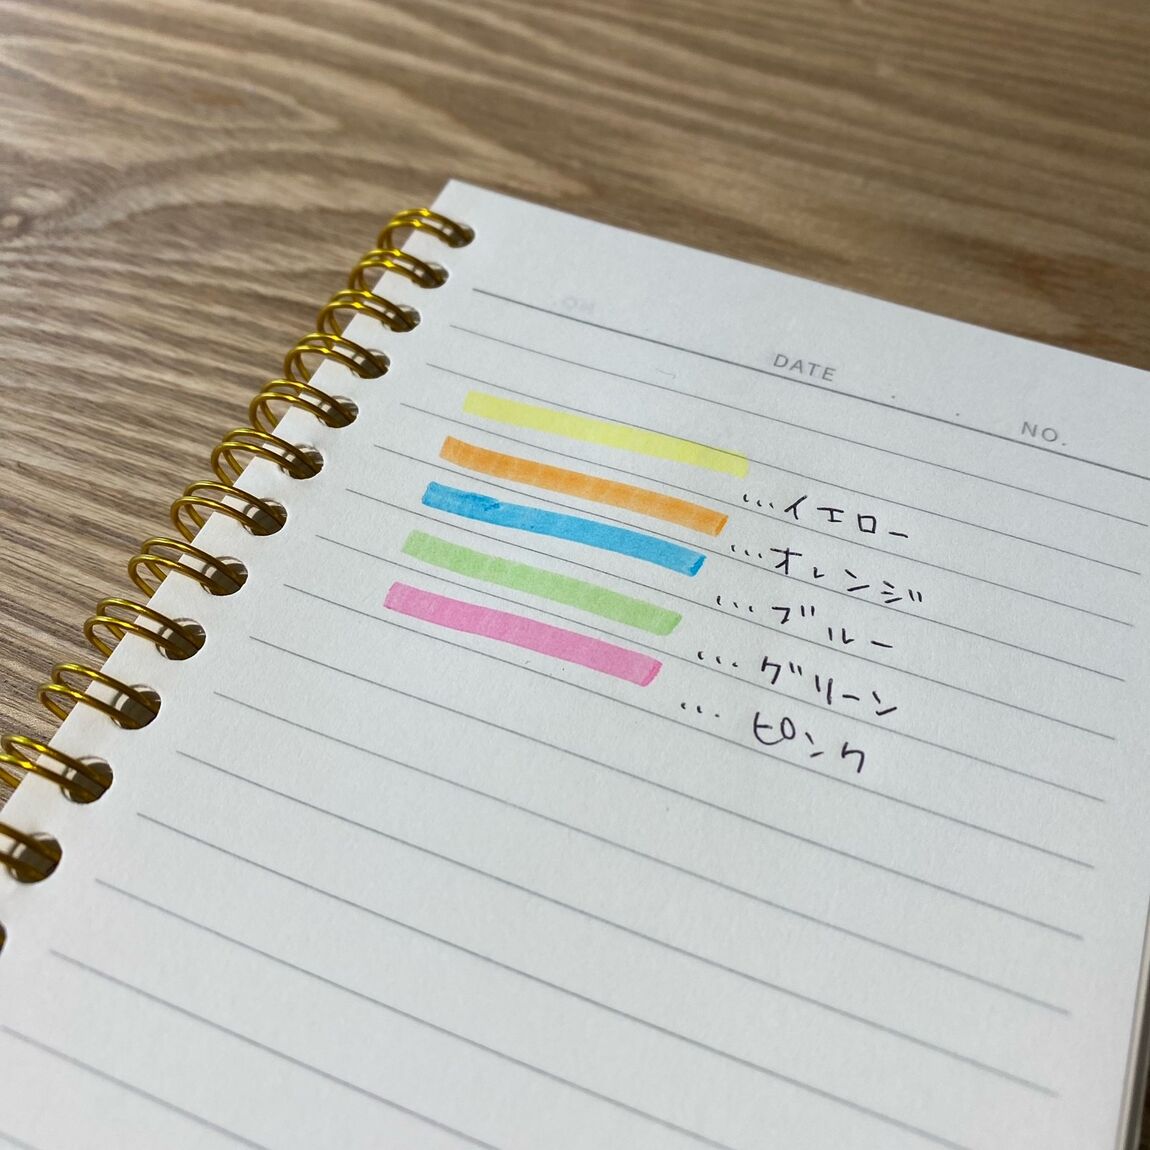 DATE
NO.
…イエロー
…オレンジ
…ブルー
…グリーン
…ピンク